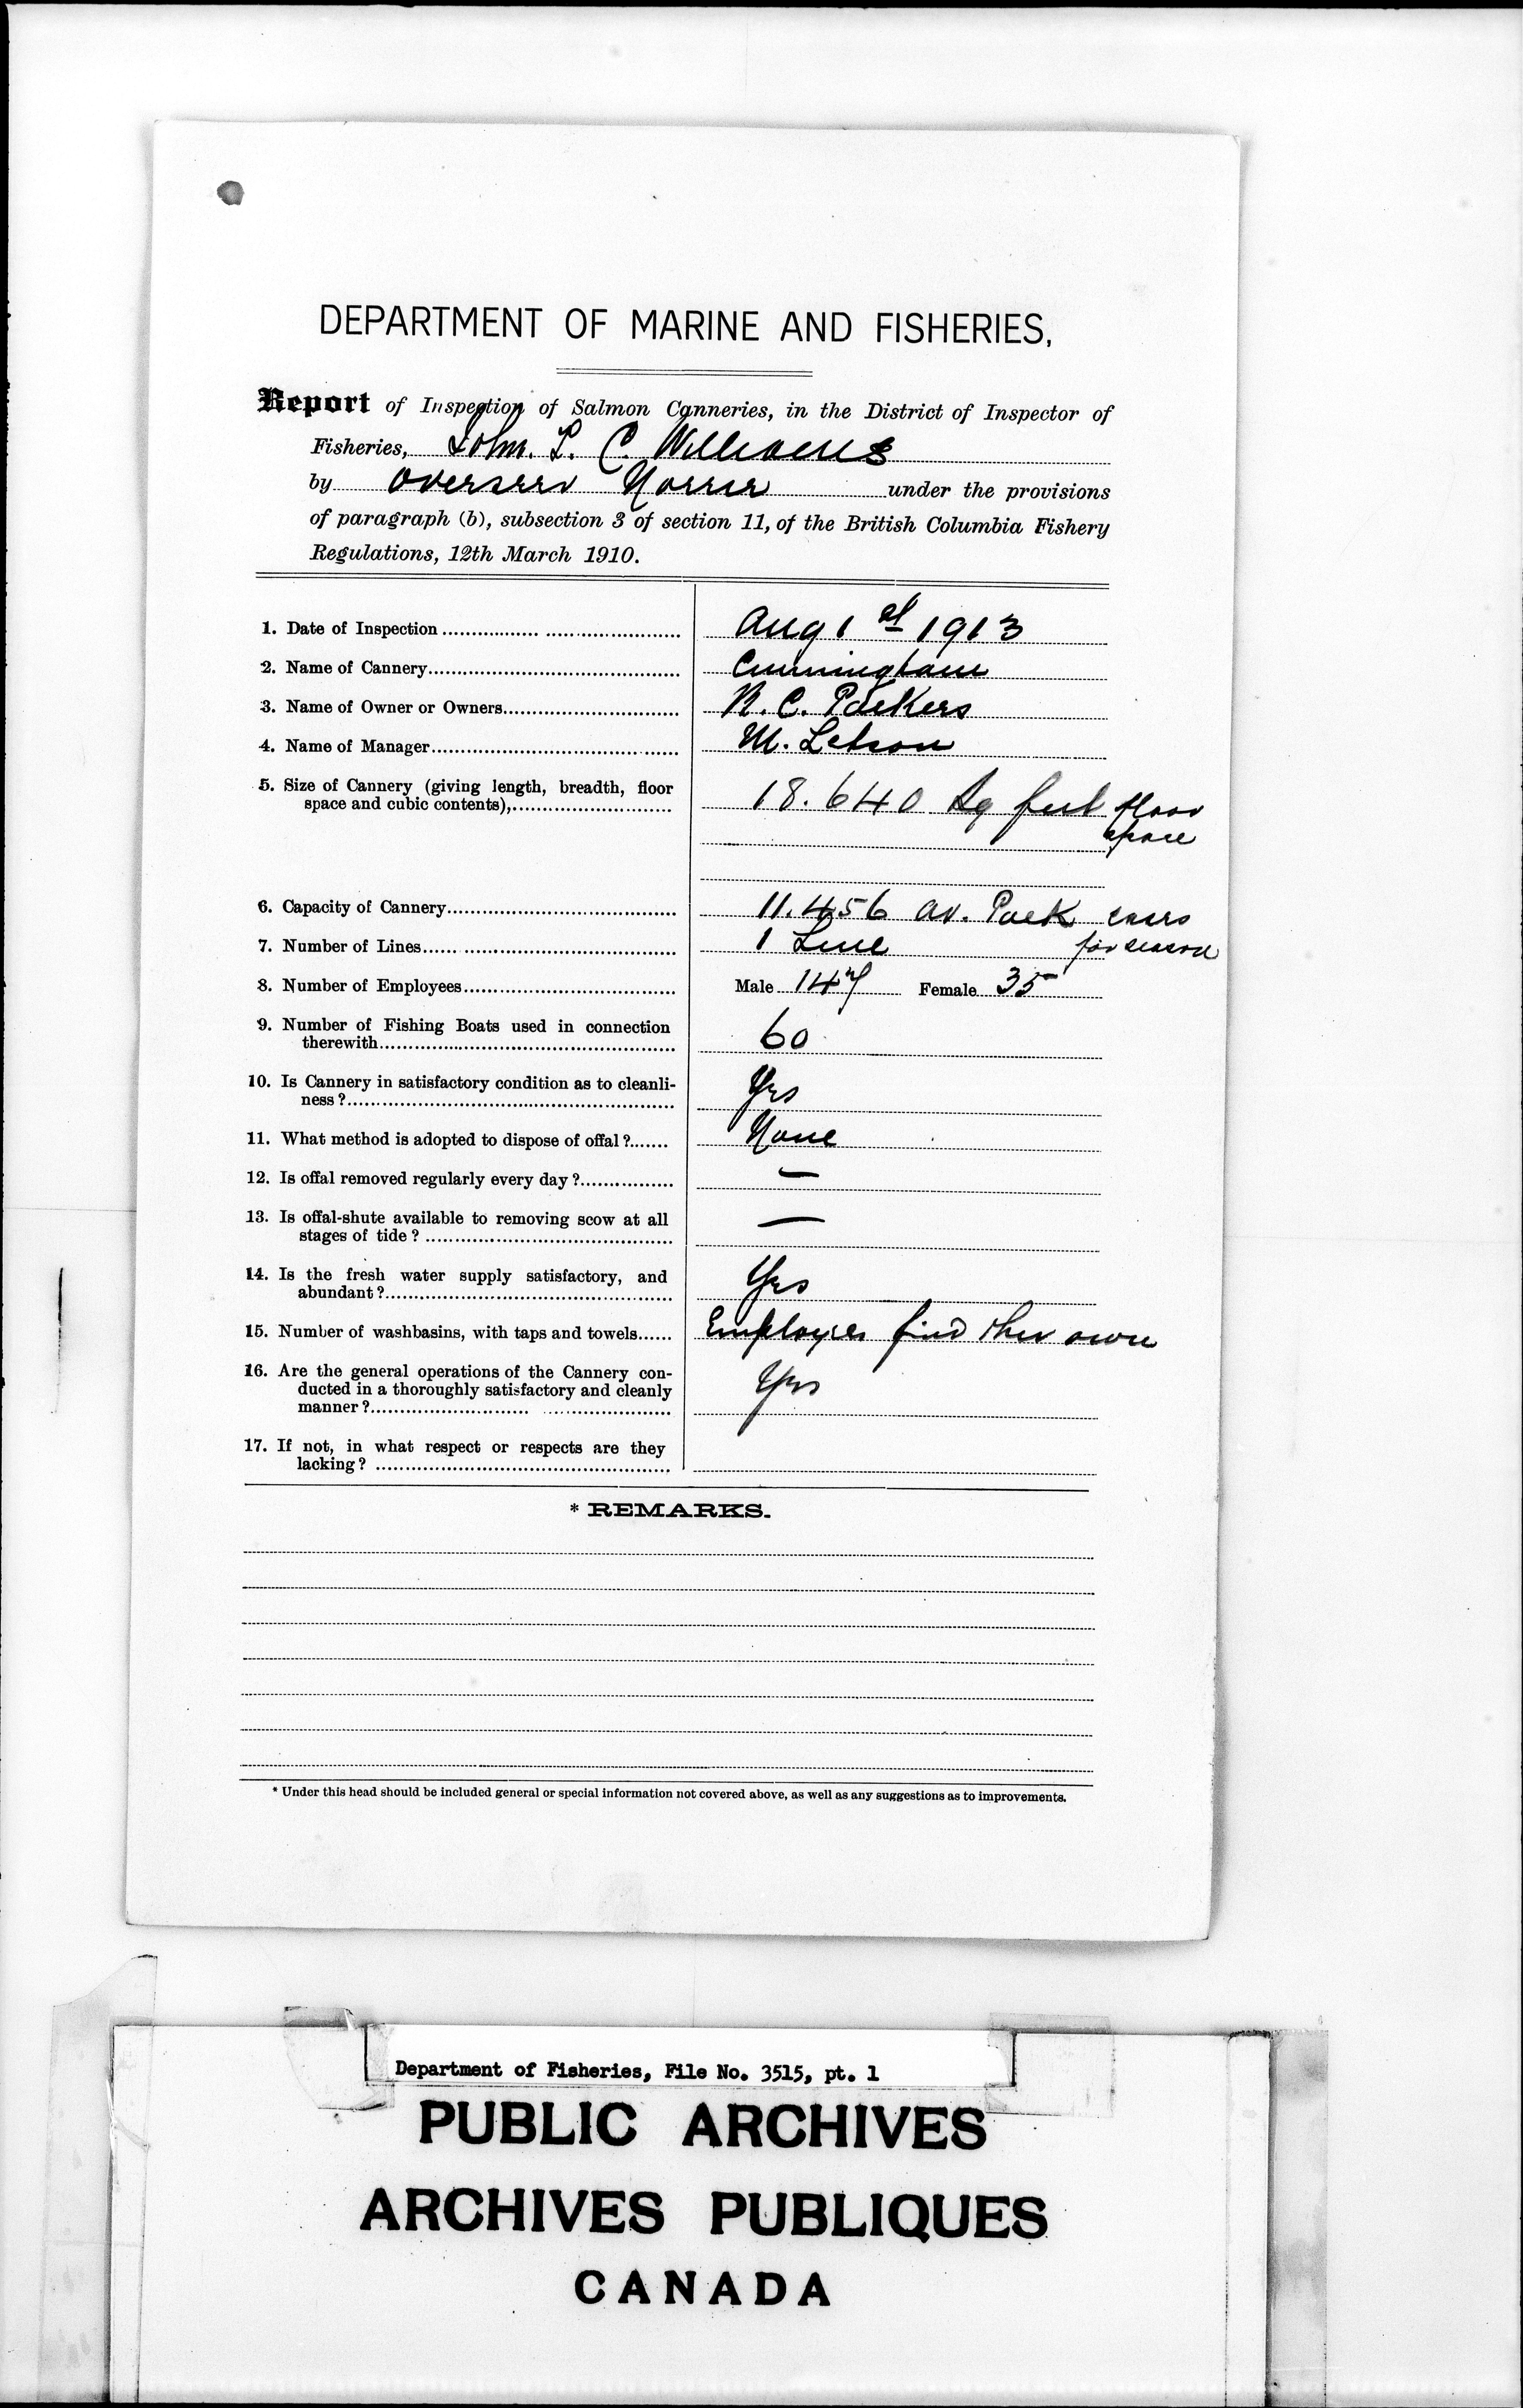 DEPARTMENT OF MARINE AND FISHERIES,
Report of Inspection of Salmon Canneries, in the District of Inspector of
Fisheries, John. L. C. Williams
by Overseer under the provisions
of paragraph (b), subsection 3 of section 11, of the British Columbia Fishery
Regulations, 12th March 1910.
1. Date of Inspection Aug 1st 1913
2. Name of Cannery Cunningham
3. Name of Owner or Owners B. C. Packers
4. Name of Manager M. Letson
5. Size of Cannery (giving length, breadth, floor
space and cubic contents), 18.640 Sq feet floor
space
6. Capacity of Cannery 11.456 av. Pack cases
for season
7. Number of Lines 1 Line
8. Number of Employees Male 147 Female 35
9. Number of Fishing Boats used in connection
therewith 60
10. Is Cannery in satisfactory condition as to cleanli-
ness? Yes
11. What method is adopted to dispose of offal? None
12. Is offal removed regularly every day? —
13. Is offal-shute available to removing scow at all
stages of tide? —
14. Is the fresh water supply satisfactory, and
abundant? Yes
15. Number of washbasins, with taps and towels Employees find ther own
16. Are the general operations of the Cannery con-
ducted in a thoroughly satisfactory and cleanly
manner? Yes
17. If not, in what respect or respects are they
lacking?
* REMARKS.
* Under this head should be included general or special information not covered above, as well as any suggestions as to improvements.
Department of Fisheries, File No. 3515, pt. 1
PUBLIC ARCHIVES
ARCHIVES PUBLIQUES
CANADA